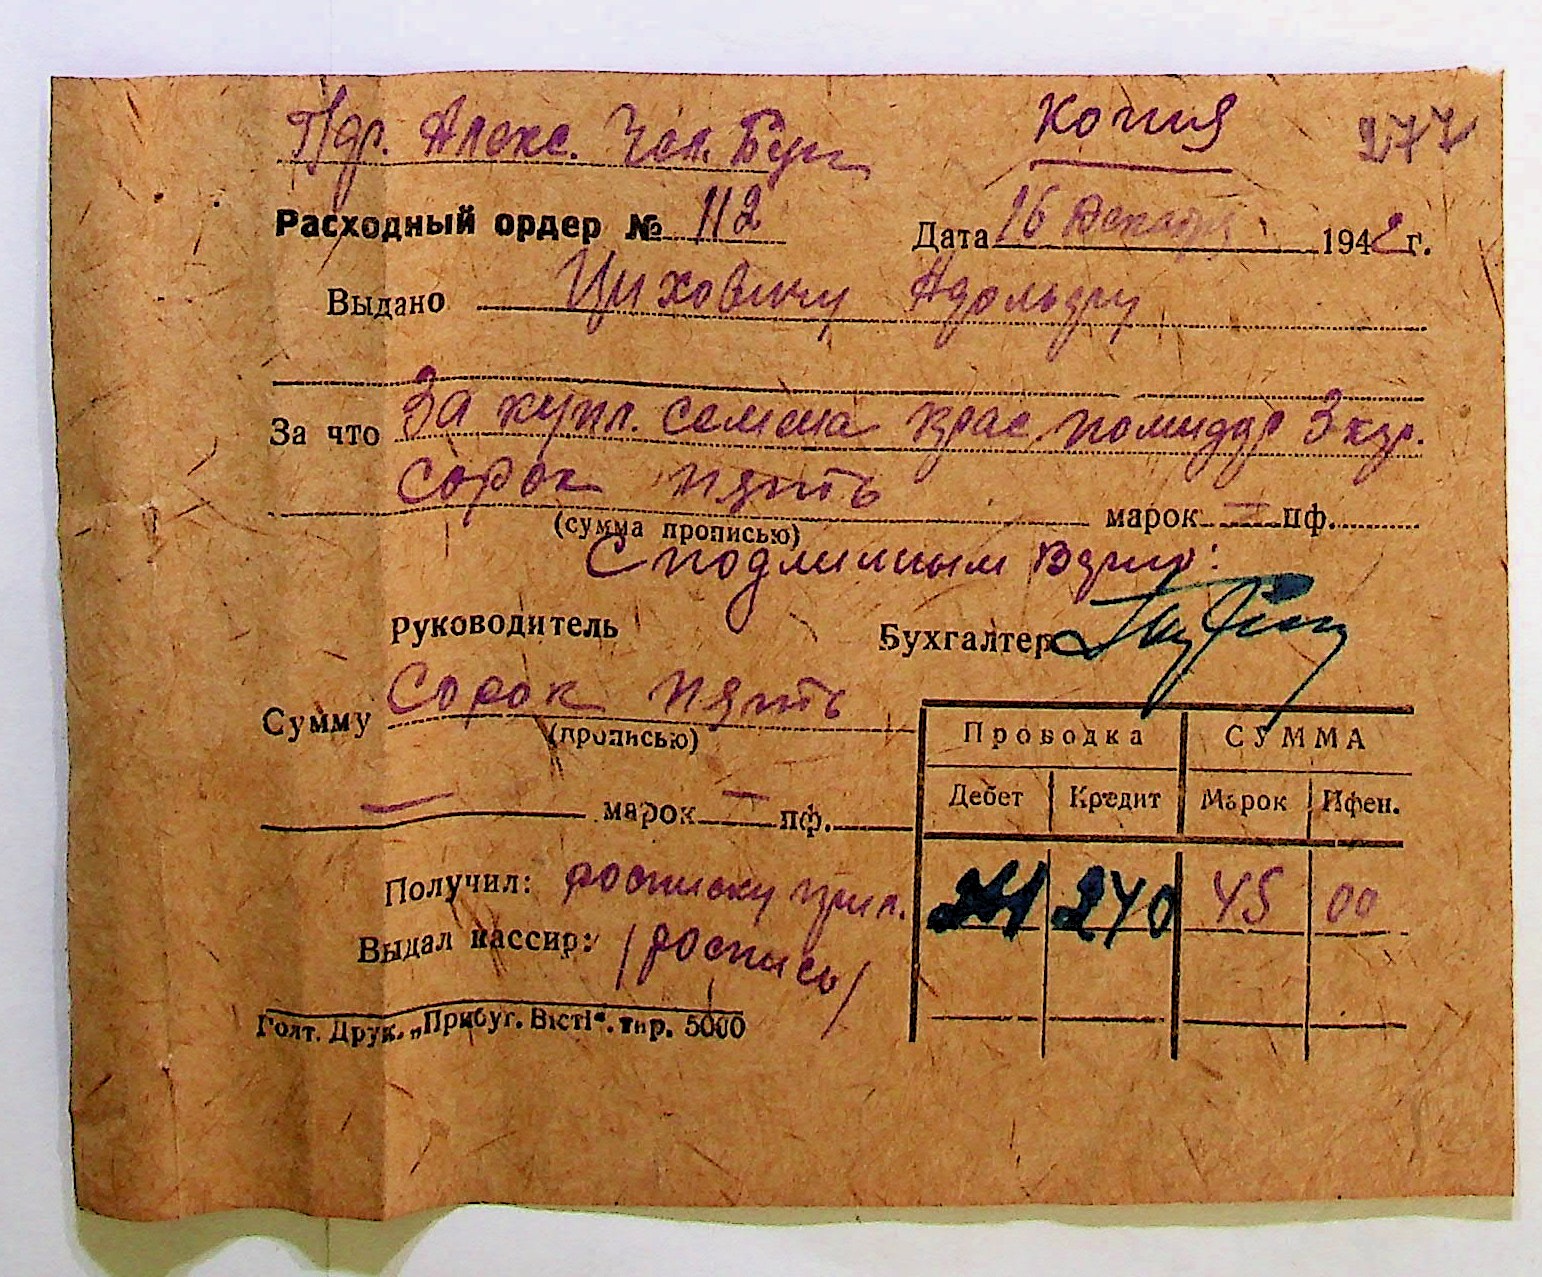 Пдр. Алекс. Копия 277
Расходный ордер № 112 Дата 16 декабря 1942 г.
Выдано Циховскому Адольфу
За что За купл. семена крас помидор 3 кгр.
сорок пять марок — пф.
(сумма прописью)
С подлинным верно:
Руководитель Бухгалтер
Сумму Сорок пять
(прописью)
— марок — пф.
Проводка СУММА
Дебет Кредит Марок Пфен.
240 45 00
Получил: росписку прил.
Выдал кассир: /роспись/
Голт. Друк. „Прибуг. Вісті“. тир. 5000